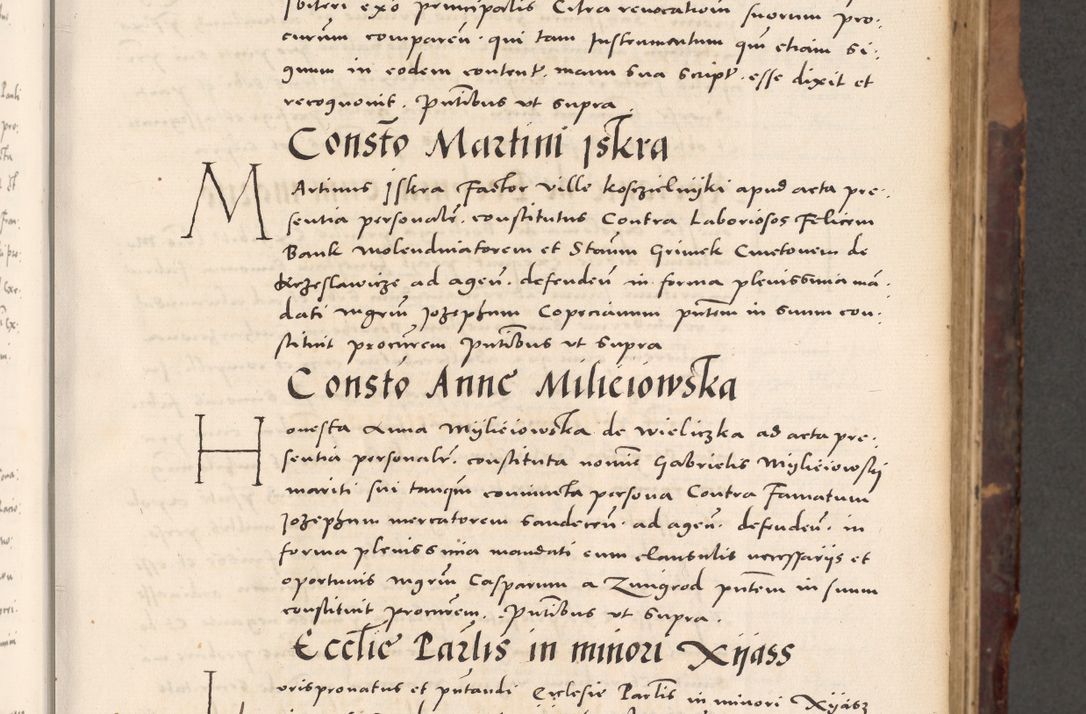 ipiteri exo principalis Citra revocationem suorum pro:
curum comparen̄. qui tam Instrumentum qm̄ etiam si:
gnum in eodem content. manu sua script. esse dixit et
recognovit. Pn̄tibus vt supra.
Consto Martini Jskra
Martinus Jskra Factor ville Koszielnijki apud acta pre:
sentia personalr̄. constitutus Contra Laboriosos Felicem
Bank molendinatorem et Stanm̄ Grimek Cmetonem de
Krzeslawicze ad agen̄. defenden̄ in forma plenissima mā:
dati mgrm̄ Jozephum Copecianum pn̄tem in suum con:
stituit procurēm Pn̄tibus vt supra
Consto Anne Milieiowska
Honesta Anna Mylieiowska de Wieliczka ad acta pre:
sentia personalr̄. constituta nomine Gabrielis Mylieiowskij
mariti sui tanqm̄ coniuncta persona Contra Famatum
Jozephum mercatorem Sandecen̄. ad agen̄. defenden̄. in
forma plenissima mandati cum clausulis necessarijs et
oportunis mgrm̄ Casparum a Zmigrod pn̄tem in suum
constituit procurēm. Pn̄tibus vt supra.
Ecctie Parlis in minori Xijass
orispronatus et pn̄tandi Ecclesie Parlis in minori Xijasz